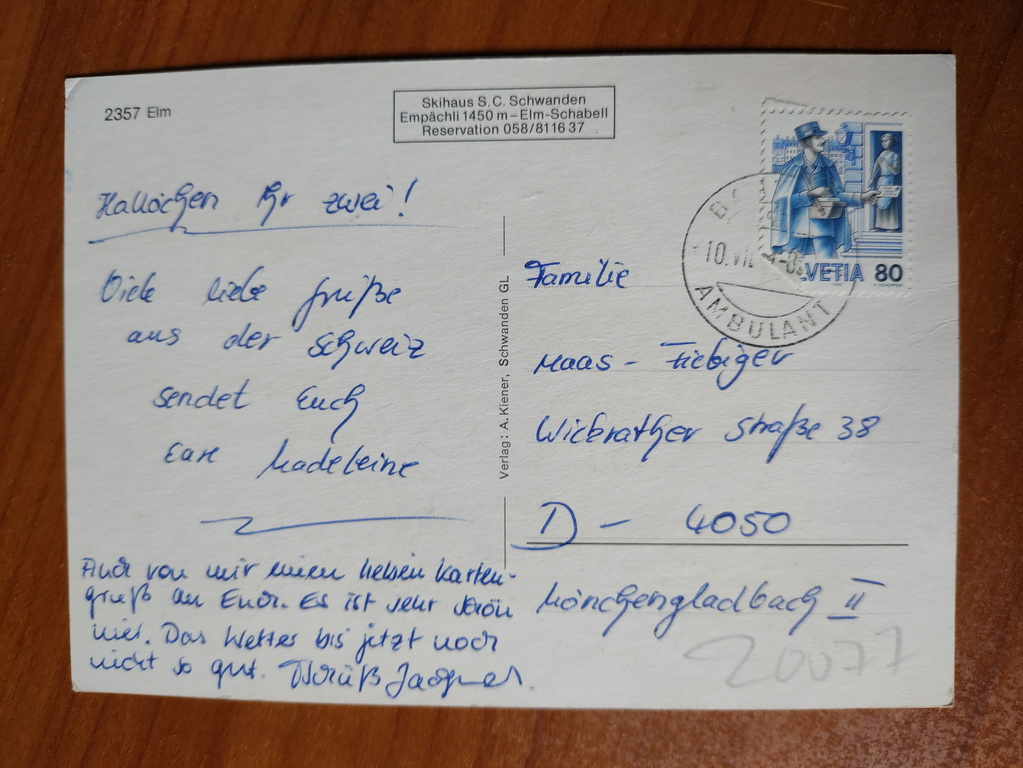 2357 Elm
Skihaus S. C. Schwanden
Empächli 1450 m – Elm-Schabell
Reservation 058/81 16 37
Hallöchen Ihr zwei!
Viele liebe Grüße
aus der Schweiz
sendet Euch
Eure Madeleine
Auch von mir einen lieben Karten-
gruß an Euch. Es ist sehr schön
hier. Das Wetter bis jetzt noch
nicht so gut. Tschüß
Verlag: A. Kiener, Schwanden GL
HELVETIA 80
10. VII
AMBULANT
Familie
Maas - Fiebiger
Wickrather Straße 38
D - 4050
Mönchengladbach II
20077